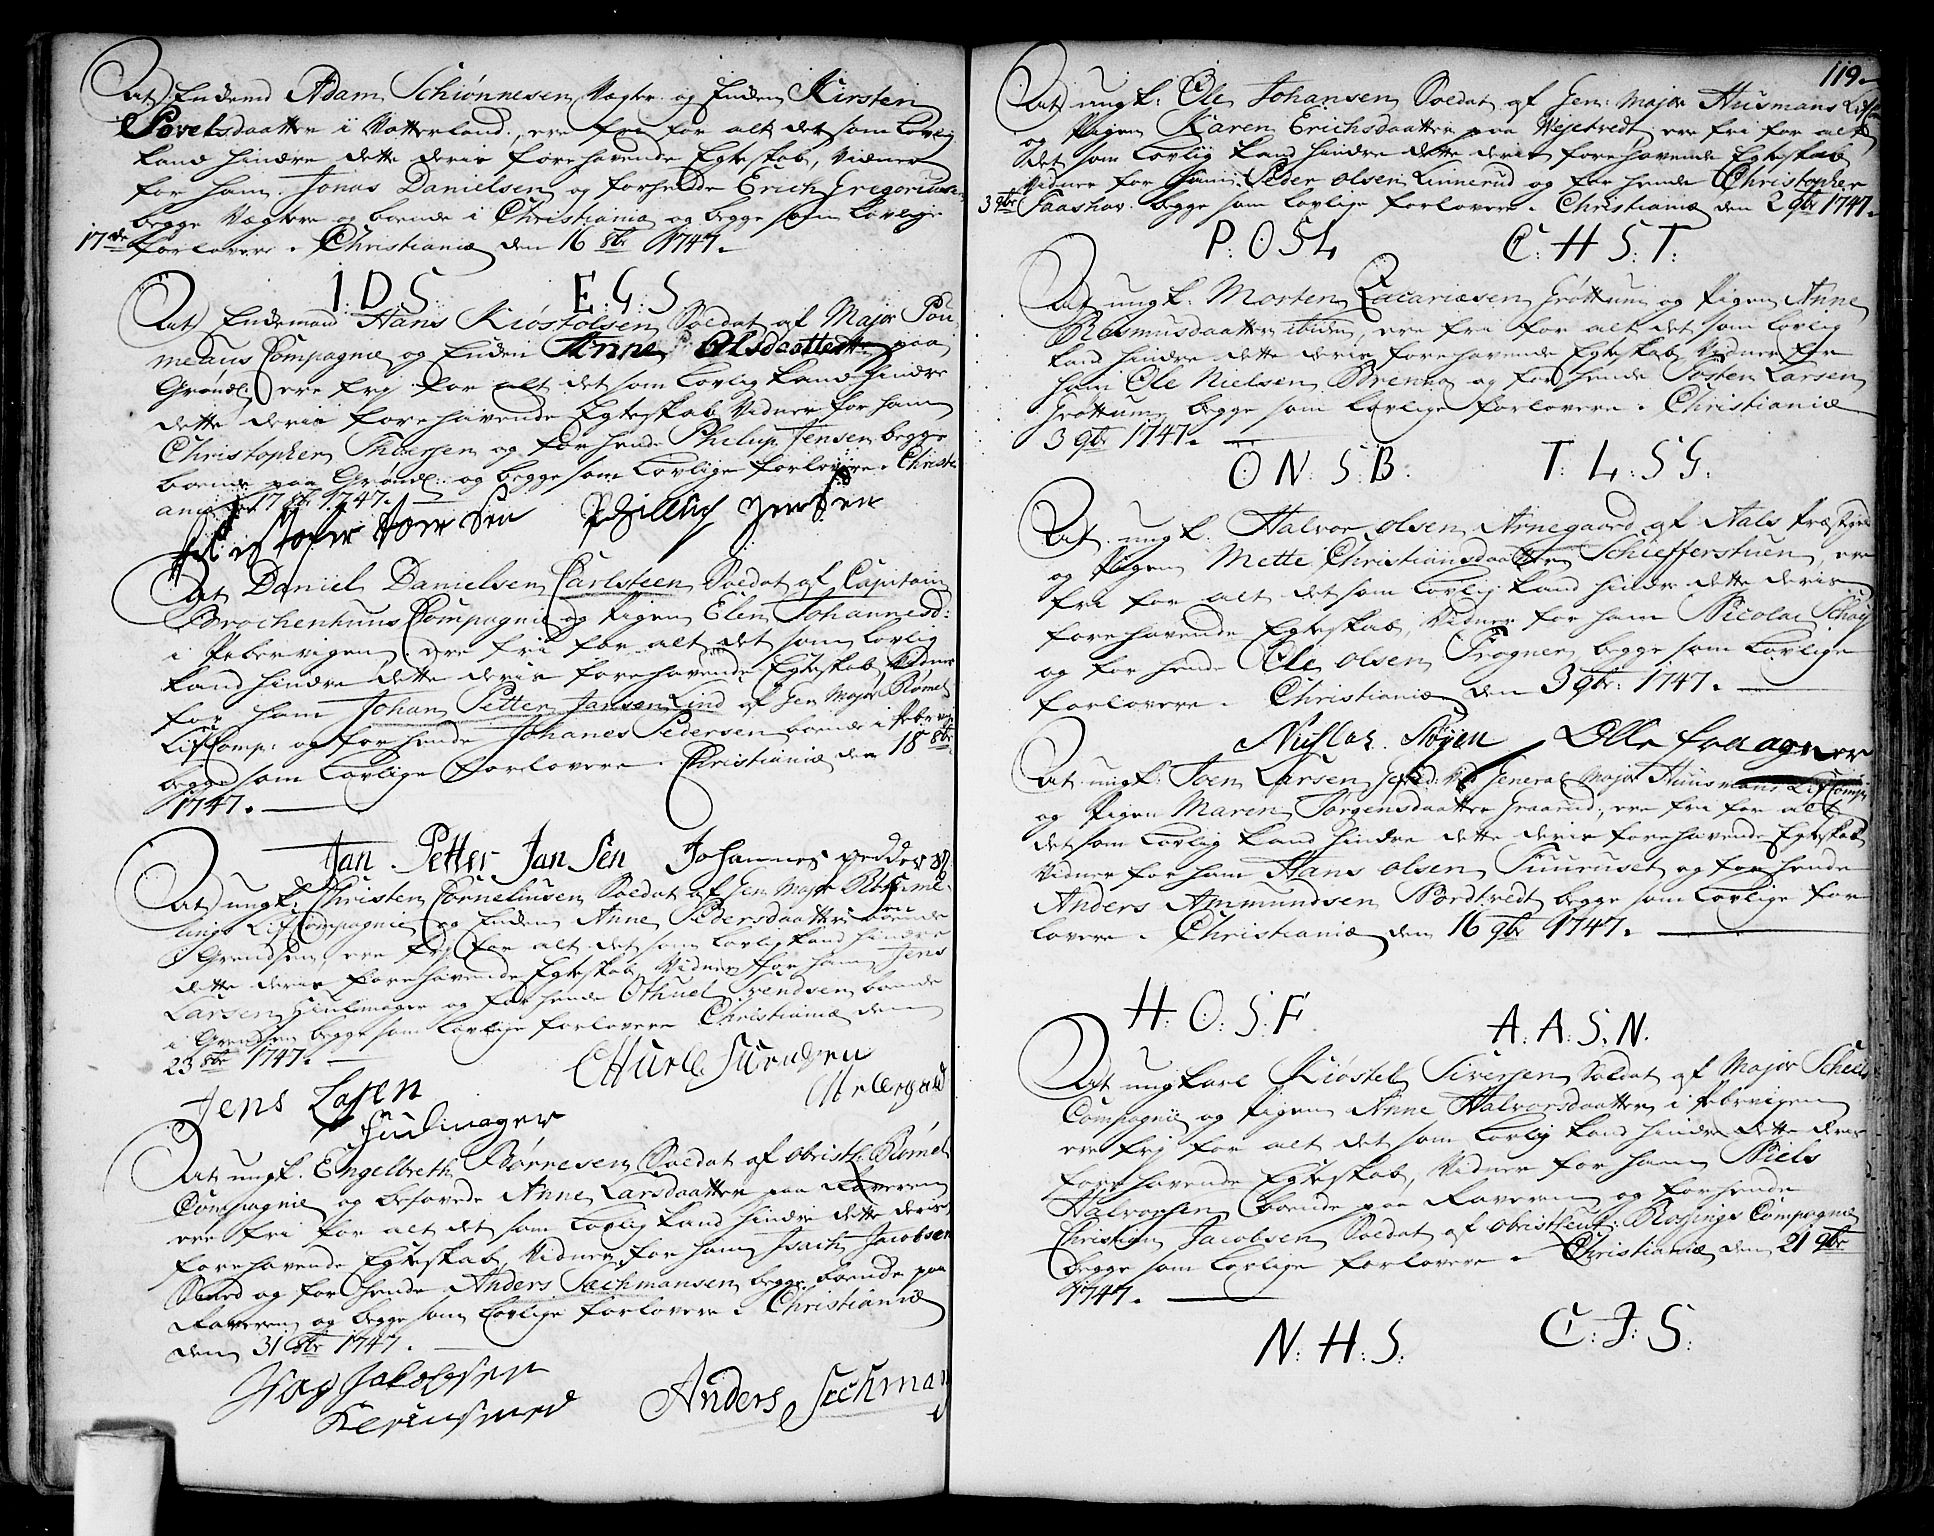 At Endemd Adam Schiønnesen Vegter og Enden Kirsten
Povelsdaatter i Vatterland, ere fri for alt det som Lovlig
kand hindre dette deris forehavende Egteskab, Vidner
for ham Jonas Danielsen og for hende Erich Gregoriuse:
begge Vegtere og boende i Christianiæ og begge som Lovlige
17de forlovere. Christianiæ den 16 8br 1747.
I: D: S: E: G: S
At Endemand Hans Kiøstolsen Soldat af Major Pou
meaus Compagnie og Enden Anne Olsdaatter paa
Grøndl: ere fry for alt det som Lovlig kand hindre
dette deris forehavende Egteskab, Vidner for ham
Christopher Thoersen og for hende Philup Jensen begge
boende paa Grønl: og begge som Lovlige forlovere. Christi
aniæ den 17 8br 1747.
Christofer Toersen Phillip Jensen
At Daniel Danielsen Carlsteen Soldat af Capitain
Brochenhuus Compagnie og Pigen Elen Johannesd:
i Pebervigen, ere fri for alt det som Lovlig
kand hindre dette deris forehavende Egteskab, Vidner
for ham Johan Petter Jansen Lind af Gen Major Rømel
LifComp: og for hende Johanes Pedersen boende i Pebervig
begge som Lovlige forlovere. Christianiæ den 18 8br
1747.
Jan Petter Jan Sen Johannes pedders
At ungk: Christen Cornelius en Soldat af Gen: Major Røme
lings LifCompagnie og Enden Anne Pedersdaatter boende
i Grendsen, ere fry for alt det som Lovlig kand hindre
dette deris forehavende Egteskab, Vidner for ham Jens
Larsen Hiulmager og for hende Othuel Svendsen boende
i Grendsen begge som Lovlige forlovere Christianiæ den
23 8br 1747.
Jens Lasen Othuell Suendsen
Hiulmager
At ungk: Engelbreth Børnesen Soldat af obristl: Rømel
Compagnie og besovede Anne Larsdaatter paa Raveren
ere fri for alt det som Lovlig kand hindre dette deris
forehavende Egteskab, Vidner for ham Isach Jacobsen
Smed og for hende Anders Sachmansen begge boende paa
Raveren og begge som Lovlige forlovere. Christianiæ
den 31 8br 1747.
Isag Jakobsen Anders Sachman
119.
At ungk: Ole Johansen Soldat af Gen: Major Husmans Lif
og Pigen Karen Erichsdaatter paa Wejetvedt, ere fri for alt
det som Lovlig kand hindre dette deris forehavende Egteskab
Vidner for ham: Peder olsen Linnerud og for hende Christopher
3 9br Taashov: begge som Lovlige forlovere. Christianiæ den 2 9br 1747.
P: O S L C: H S: T:
At ungk: Morten Zacariæsen Grøttum og Pigen Anne
Rasmusdaatter ibiden, ere fri for alt det som Lovlig
kand hindre dette deris forehavende Egteskab, Vidner for
ham Ole Nielsen Brenna og for hende Tosten Larsen
Grøttum, begge som Lovlige forlovere. Christianiæ
3 9br 1747.
O: N: S: B: T: L: S G:
At ungk: Halvor olsen Arnegaard af Aals Præstgield
og Pigen Mette Christiansdaatter Schiefferstuen, ere
fri for alt det som Lovlig kand hindre dette deris
forehavende Egteskab, Vidner for ham Nicolai Schøy
og for hende Ole olsen Frogner begge som Lovlige
forlovere. Christianiæ den 3 9br: 1747.
Olle fraagner
At ungk: Joen Larsen General Major Huusmans LifComp:
og Pigen Maren Jørgensdaatter Graarud, ere fri for alt
det som Lovlig kand hindre dette deris forehavende Egteskab
Vidner for ham Hans olsen Fuuruset og for hende
Anders Ammundsen Nordtvedt begge som Lovlige for
lovere. Christianiæ den 16 9br 1747.
H: O: S: F: A: A: S: N:
At ungkarl Kiøstel Siversen Soldat af Major Scheels
Compagnie og Pigen Anne Halvorsdaatter i Pebervigen
ere fry for alt det som Lovlig kand hindre dette deris
forehavende Egteskab, Vidner for ham Niels
Halvorsen boende paa Raveren og for hende
Christian Jacobsen Soldat af Obristlieut: Rossings Compagnie
begge som Lovlige forlovere. Christianiæ den 21 9br
1747.
N: H: S: C: J: S: